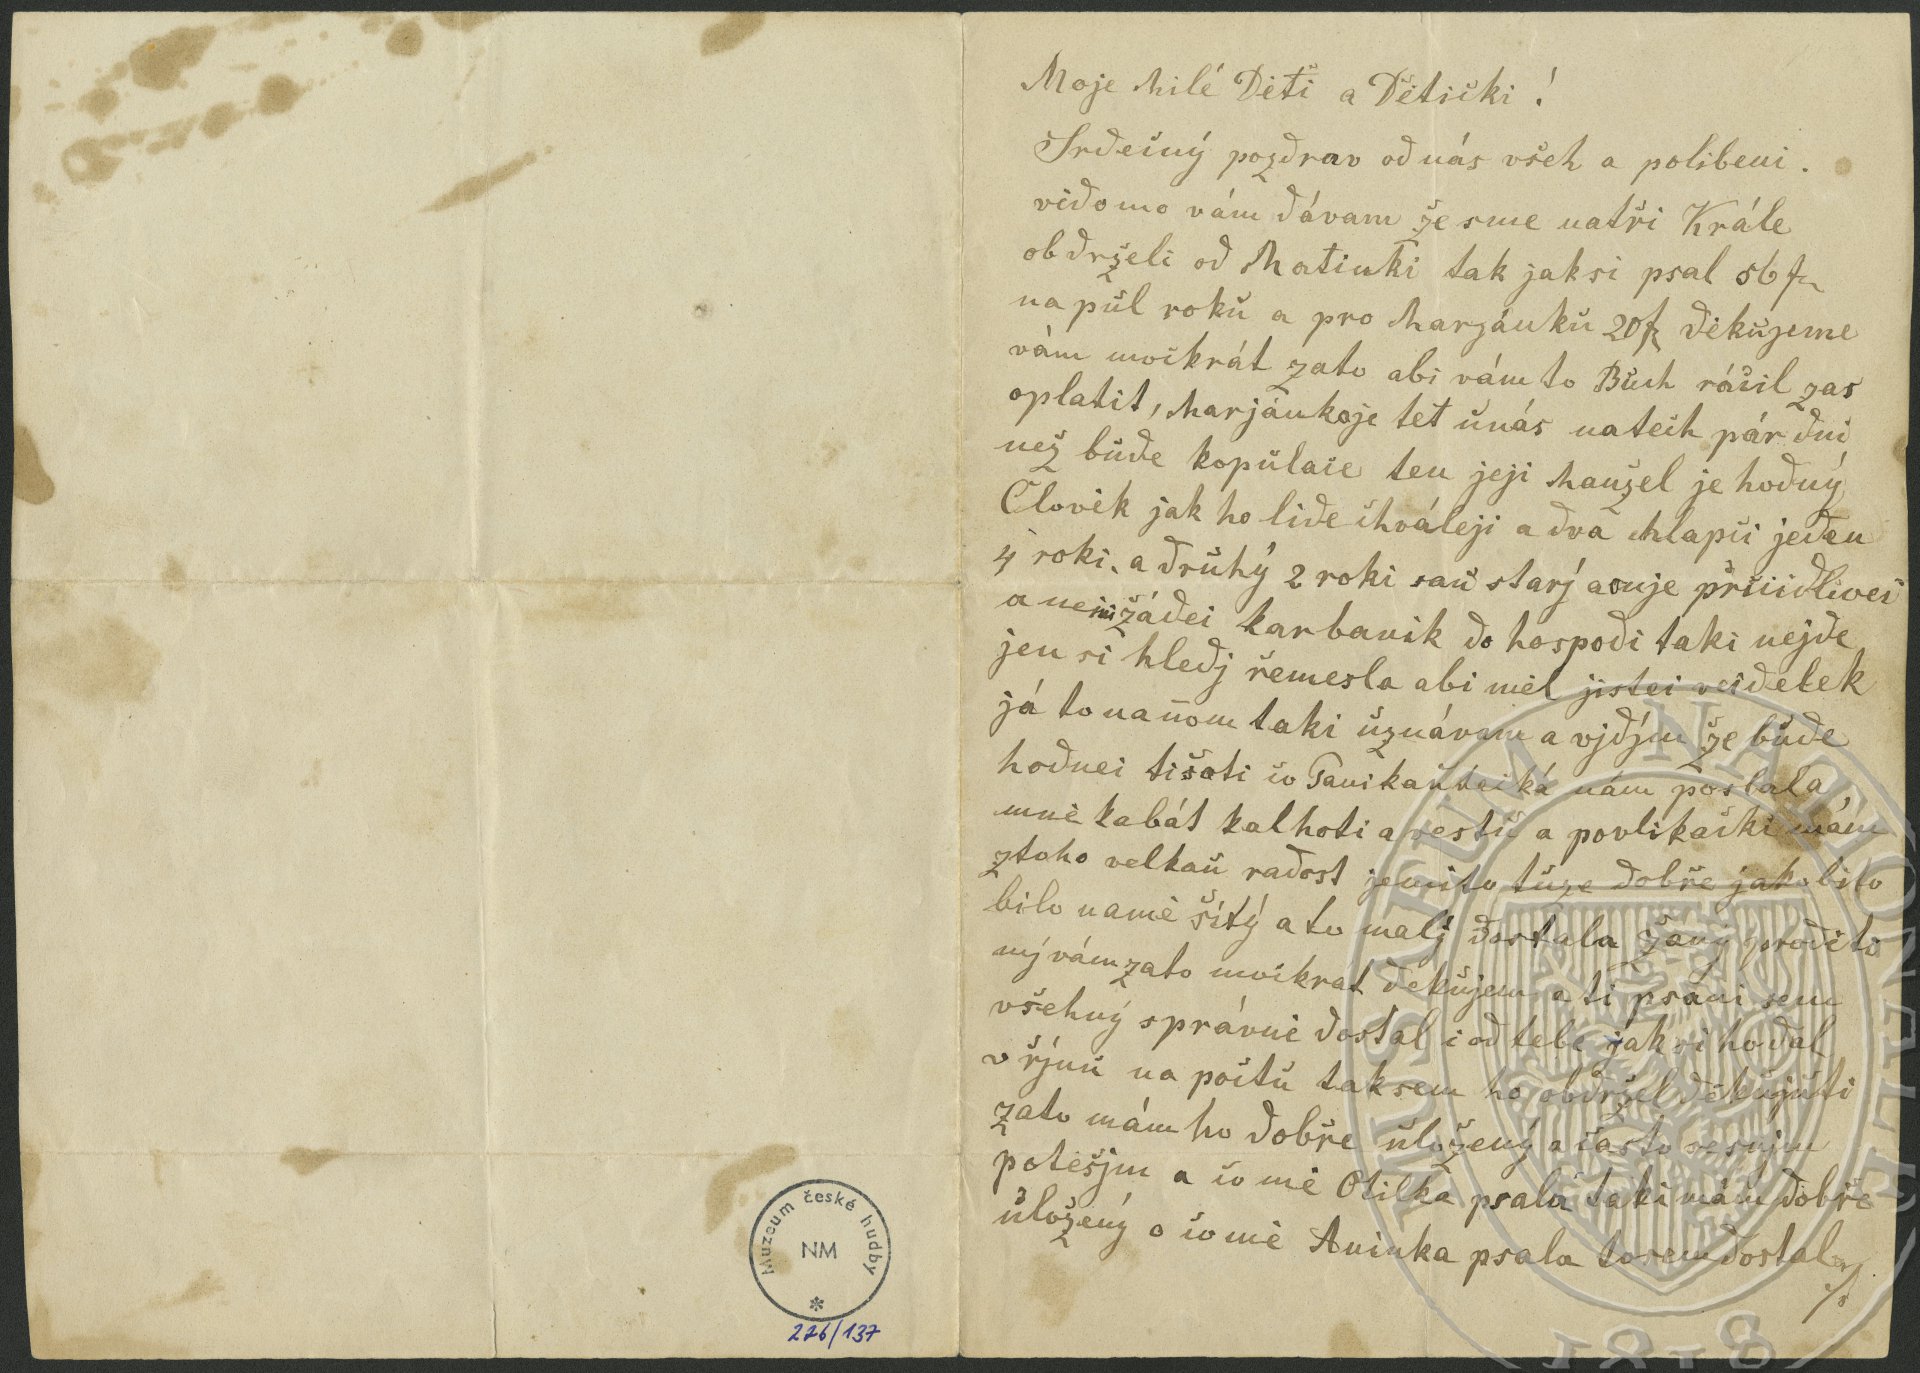 Muzeum české hudby
NM
226/137
Moje Milé Děťi a Dětički !
Srdečný pozdrav od nás všeh a polibeni .
viďomo vám dávam že sme natři Krále
obdrželi od Matinki tak jaksi psal 56 fr
na půl roku a pro Marjánku 20 fr děkujeme
vám mockrát zato abi vám to Buch ráčil zas
oplatit, Marjánkaje teť unás natěch pár dni
než bude kopulace ten jeji Manžel je hodný
Člověk jak ho lide chváleji a dva chlapci jeden
4 roki, a druhý 2 roki sau starj aonje
a nejni žádei karbanik do hospodi taki nejde
jen si hledj řemesla abi měl jistei veidelek
já to nanom taki uznávam a vjdjm že bude
hodnei tišoti co nám poslala
mně kabát kalhoti a vestu a povlikački mám
ztoho velkau radost jemito tuze dobře jakobito
bilo namě šitý a to malj dostala žaný prodeti
mj vám zato mockrat dekujem a ti psani sem
všehny správně dostal i od tebe jak si ho dal
v řjnu na poštu tak sem ho obdržel děkujuti
zato mám ho dobře uložený a často sesnjm
potěšjm a co mě Otilka psala taki mám dobře
uložený a co mě Aninka psala tosem dostal
MUSEUM NATIONALE
1818